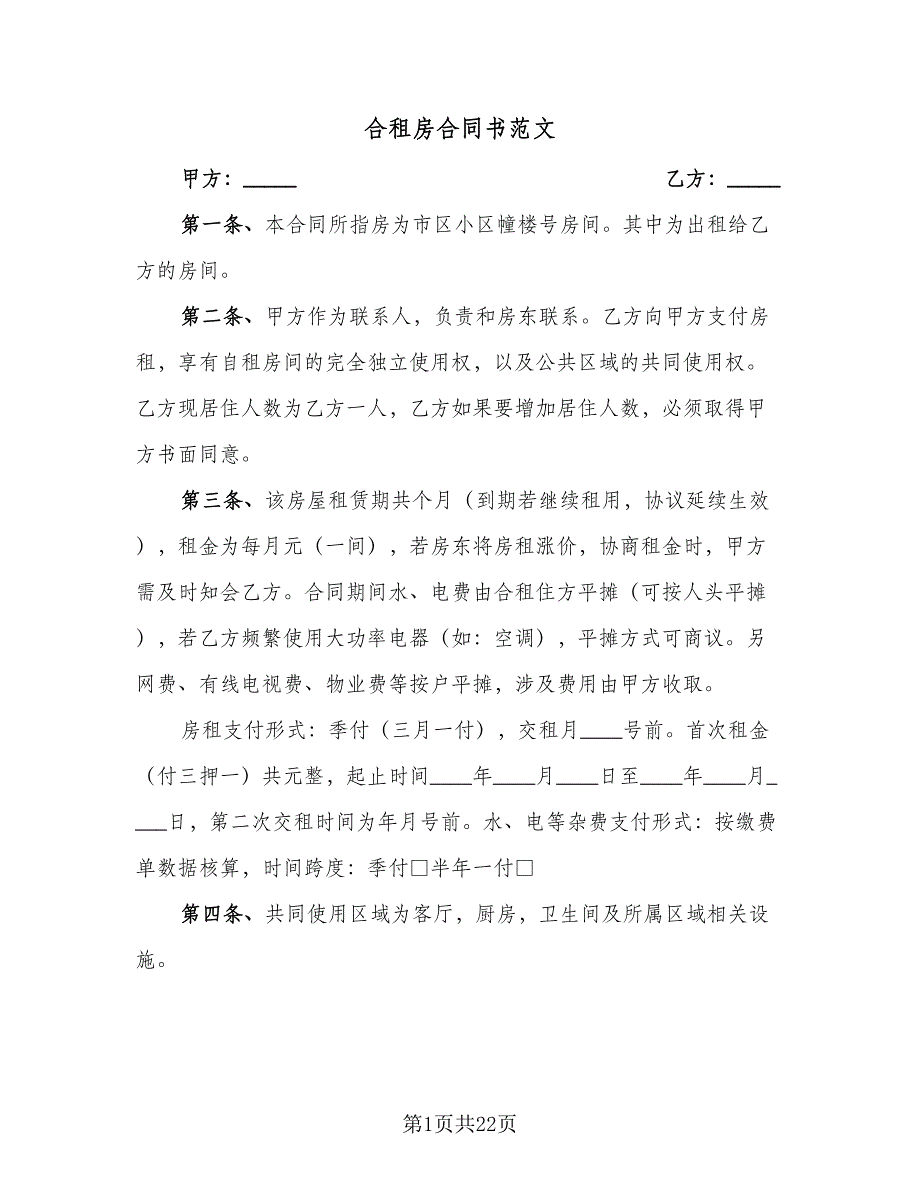 合租房合同书范文
甲方：_____ 乙方：_____
第一条、本合同所指房为市区小区幢楼号房间。其中为出租给乙
方的房间。
第二条、甲方作为联系人，负责和房东联系。乙方向甲方支付房
租，享有自租房间的完全独立使用权，以及公共区域的共同使用权。
乙方现居住人数为乙方一人，乙方如果要增加居住人数，必须取得甲
方书面同意。
第三条、该房屋租赁期共个月（到期若继续租用，协议延续生效
），租金为每月元（一间），若房东将房租涨价，协商租金时，甲方
需及时知会乙方。合同期间水、电费由合租住方平摊（可按人头平摊
），若乙方频繁使用大功率电器（如：空调），平摊方式可商议。另
网费、有线电视费、物业费等按户平摊，涉及费用由甲方收取。
房租支付形式：季付（三月一付），交租月____号前。首次租金
（付三押一）共元整，起止时间____年____月____日至____年____月_
___日，第二次交租时间为年月号前。水、电等杂费支付形式：按缴费
单数据核算，时间跨度：季付□半年一付□
第四条、共同使用区域为客厅，厨房，卫生间及所属区域相关设
施。
第1页共22页